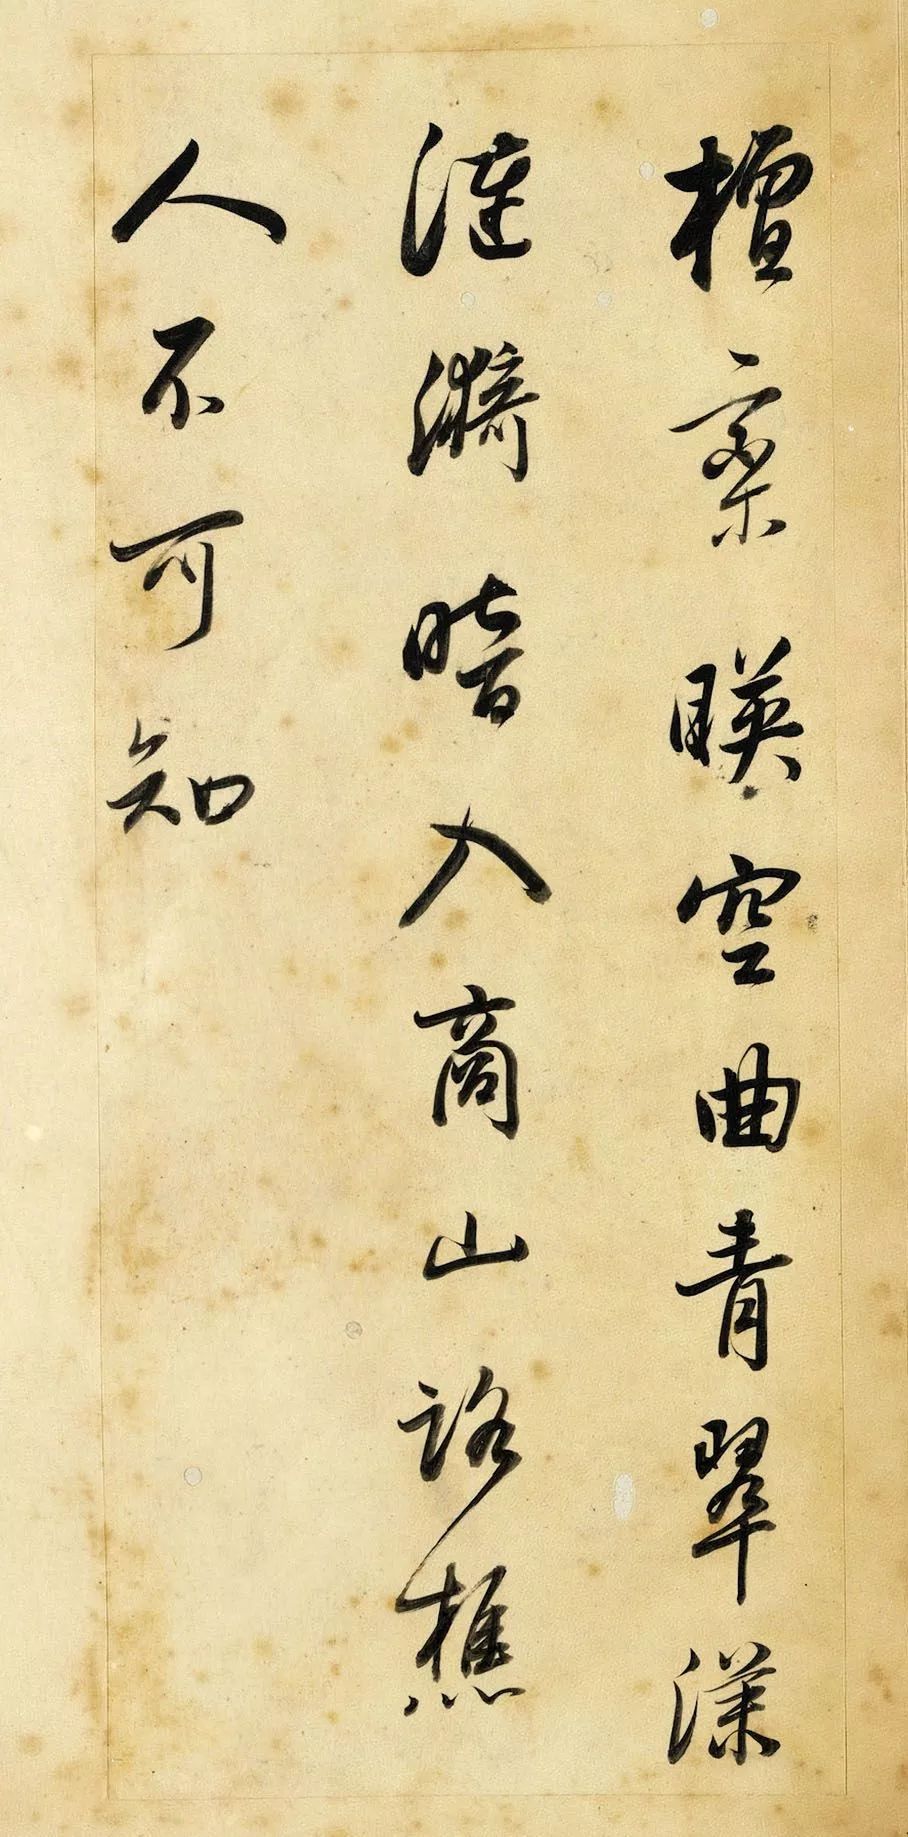 檀栾暎空曲青翠漾
涟漪暗入商山路樵
人不可知